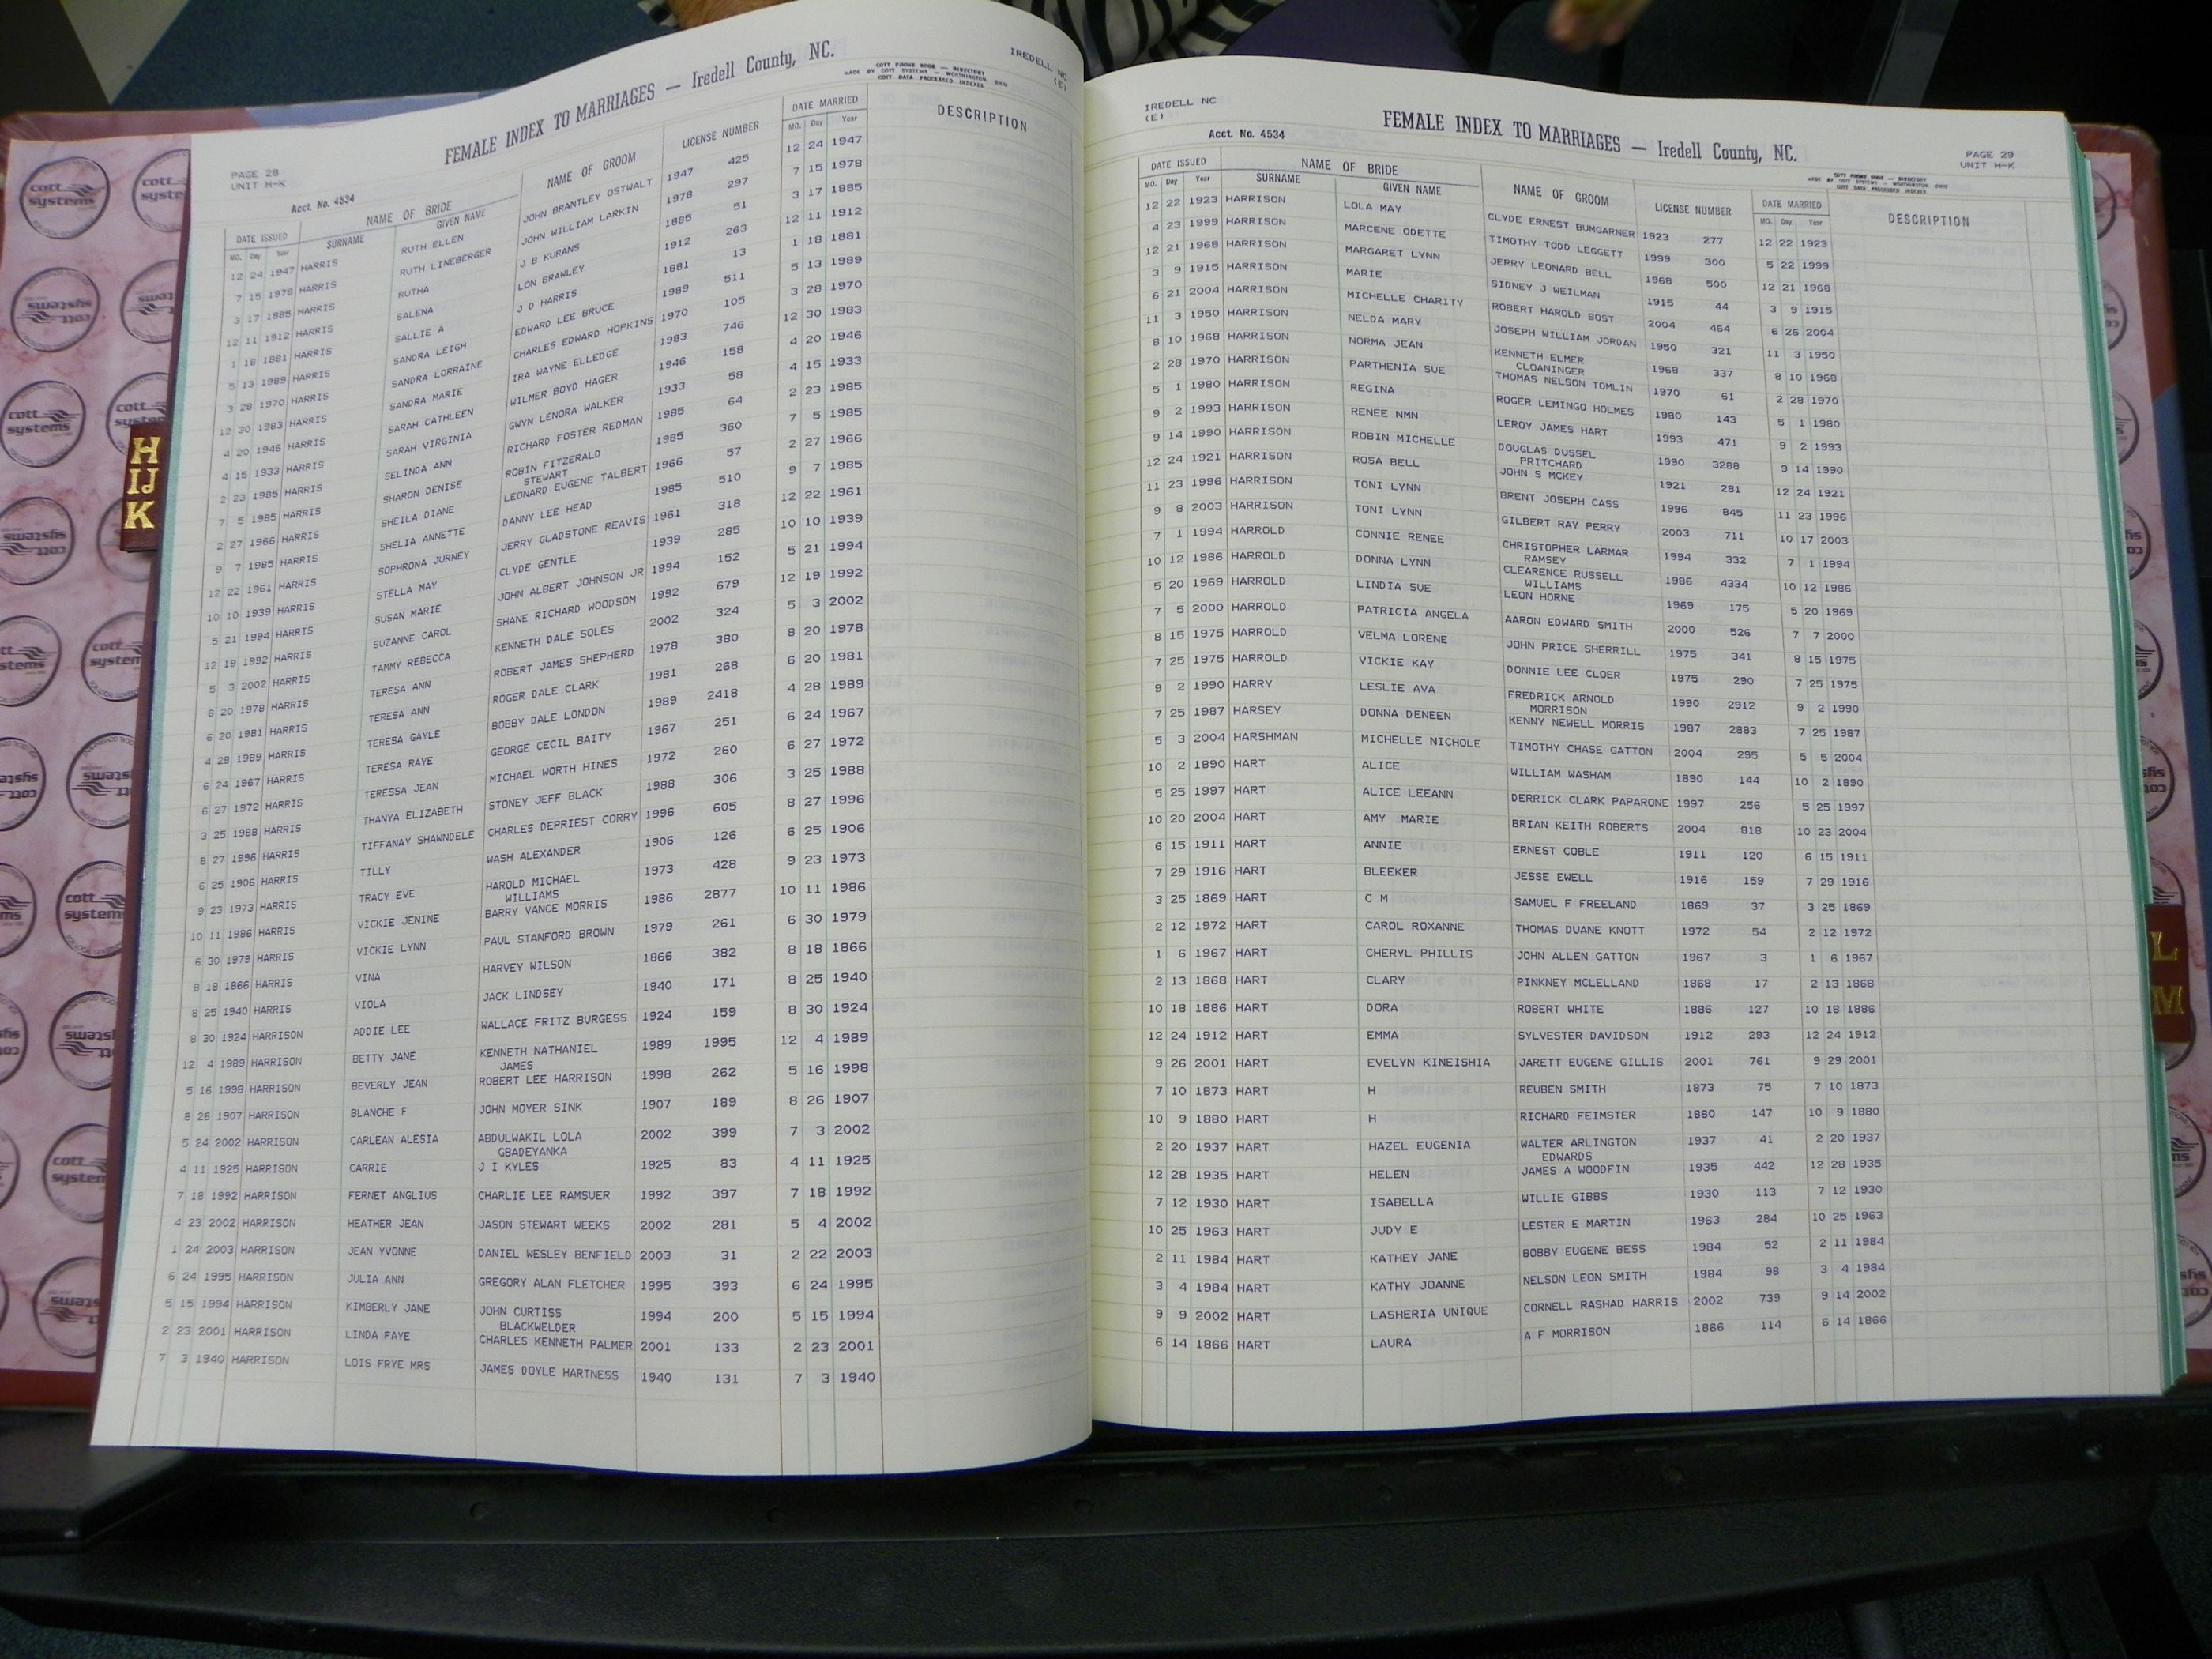 PAGE 28
UNIT H-K
Acct. No. 4534
FEMALE INDEX TO MARRIAGES — Iredell County, NC.
COTT PHONE BOOK — DIRECTORY
MADE BY COTT SYSTEMS — WORTHINGTON, OHIO
COTT DATA PROCESSED INDEXES
IREDELL NC
(E)
DATE ISSUED NAME OF BRIDE NAME OF GROOM LICENSE NUMBER DATE MARRIED DESCRIPTION
MO. Day Year SURNAME GIVEN NAME MO. Day Year
12 24 1947 HARRIS RUTH ELLEN JOHN BRANTLEY OSTWALT 1947 425 12 24 1947
7 15 1978 HARRIS RUTH LINEBERGER JOHN WILLIAM LARKIN 1978 297 7 15 1978
3 17 1885 HARRIS RUTHA J B KURANS 1885 51 3 17 1885
12 11 1912 HARRIS SALENA LON BRAWLEY 1912 263 12 11 1912
1 18 1881 HARRIS SALLIE A J D HARRIS 1881 13 1 18 1881
5 13 1989 HARRIS SANDRA LEIGH EDWARD LEE BRUCE 1989 511 5 13 1989
3 28 1970 HARRIS SANDRA LORRAINE CHARLES EDWARD HOPKINS 1970 105 3 28 1970
12 30 1983 HARRIS SANDRA MARIE IRA WAYNE ELLEDGE 1983 746 12 30 1983
4 20 1946 HARRIS SARAH CATHLEEN WILMER BOYD HAGER 1946 158 4 20 1946
4 15 1933 HARRIS SARAH VIRGINIA GWYN LENORA WALKER 1933 58 4 15 1933
2 23 1985 HARRIS SELINDA ANN RICHARD FOSTER REDMAN 1985 64 2 23 1985
7 5 1985 HARRIS SHARON DENISE ROBIN FITZERALD 1985 360 7 5 1985
STEWART
2 27 1966 HARRIS SHEILA DIANE LEONARD EUGENE TALBERT 1966 57 2 27 1966
9 7 1985 HARRIS SHELIA ANNETTE DANNY LEE HEAD 1985 510 9 7 1985
12 22 1961 HARRIS SOPHRONA JURNEY JERRY GLADSTONE REAVIS 1961 318 12 22 1961
10 10 1939 HARRIS STELLA MAY CLYDE GENTLE 1939 285 10 10 1939
5 21 1994 HARRIS SUSAN MARIE JOHN ALBERT JOHNSON JR 1994 152 5 21 1994
12 19 1992 HARRIS SUZANNE CAROL SHANE RICHARD WOODSOM 1992 679 12 19 1992
5 3 2002 HARRIS TAMMY REBECCA KENNETH DALE SOLES 2002 324 5 3 2002
8 20 1978 HARRIS TERESA ANN ROBERT JAMES SHEPHERD 1978 380 8 20 1978
6 20 1981 HARRIS TERESA ANN ROGER DALE CLARK 1981 268 6 20 1981
4 28 1989 HARRIS TERESA GAYLE BOBBY DALE LONDON 1989 2418 4 28 1989
6 24 1967 HARRIS TERESA RAYE GEORGE CECIL BAITY 1967 251 6 24 1967
6 27 1972 HARRIS TERESSA JEAN MICHAEL WORTH HINES 1972 260 6 27 1972
3 25 1988 HARRIS THANYA ELIZABETH STONEY JEFF BLACK 1988 306 3 25 1988
8 27 1996 HARRIS TIFFANAY SHAWNDELE CHARLES DEPRIEST CORRY 1996 605 8 27 1996
6 25 1906 HARRIS TILLY WASH ALEXANDER 1906 126 6 25 1906
9 23 1973 HARRIS TRACY EVE HAROLD MICHAEL 1973 428 9 23 1973
WILLIAMS
10 11 1986 HARRIS VICKIE JENINE BARRY VANCE MORRIS 1986 2877 10 11 1986
6 30 1979 HARRIS VICKIE LYNN PAUL STANFORD BROWN 1979 261 6 30 1979
8 18 1866 HARRIS VINA HARVEY WILSON 1866 382 8 18 1866
8 25 1940 HARRIS VIOLA JACK LINDSEY 1940 171 8 25 1940
8 30 1924 HARRISON ADDIE LEE WALLACE FRITZ BURGESS 1924 159 8 30 1924
12 4 1989 HARRISON BETTY JANE KENNETH NATHANIEL 1989 1995 12 4 1989
JAMES
5 16 1998 HARRISON BEVERLY JEAN ROBERT LEE HARRISON 1998 262 5 16 1998
8 26 1907 HARRISON BLANCHE F JOHN MOYER SINK 1907 189 8 26 1907
5 24 2002 HARRISON CARLEAN ALESIA ABDULWAKIL LOLA 2002 399 7 3 2002
GBADEYANKA
4 11 1925 HARRISON CARRIE J I KYLES 1925 83 4 11 1925
7 18 1992 HARRISON FERNET ANGLIUS CHARLIE LEE RAMSUER 1992 397 7 18 1992
4 23 2002 HARRISON HEATHER JEAN JASON STEWART WEEKS 2002 281 5 4 2002
1 24 2003 HARRISON JEAN YVONNE DANIEL WESLEY BENFIELD 2003 31 2 22 2003
6 24 1995 HARRISON JULIA ANN GREGORY ALAN FLETCHER 1995 393 6 24 1995
5 15 1994 HARRISON KIMBERLY JANE JOHN CURTISS 1994 200 5 15 1994
BLACKWELDER
2 23 2001 HARRISON LINDA FAYE CHARLES KENNETH PALMER 2001 133 2 23 2001
7 3 1940 HARRISON LOIS FRYE MRS JAMES DOYLE HARTNESS 1940 131 7 3 1940
IREDELL NC
(E)
Acct. No. 4534
FEMALE INDEX TO MARRIAGES — Iredell County, NC.
PAGE 29
UNIT H-K
COTT PHONE BOOK — DIRECTORY
MADE BY COTT SYSTEMS — WORTHINGTON, OHIO
COTT DATA PROCESSED INDEXES
DATE ISSUED NAME OF BRIDE NAME OF GROOM LICENSE NUMBER DATE MARRIED DESCRIPTION
MO. Day Year SURNAME GIVEN NAME MO. Day Year
12 22 1923 HARRISON LOLA MAY CLYDE ERNEST BUMGARNER 1923 277 12 22 1923
4 23 1999 HARRISON MARCENE ODETTE TIMOTHY TODD LEGGETT 1999 300 5 22 1999
12 21 1968 HARRISON MARGARET LYNN JERRY LEONARD BELL 1968 500 12 21 1968
3 9 1915 HARRISON MARIE SIDNEY J WEILMAN 1915 44 3 9 1915
6 21 2004 HARRISON MICHELLE CHARITY ROBERT HAROLD BOST 2004 464 6 26 2004
11 3 1950 HARRISON NELDA MARY JOSEPH WILLIAM JORDAN 1950 321 11 3 1950
8 10 1968 HARRISON NORMA JEAN KENNETH ELMER 1968 337 8 10 1968
CLOANINGER
2 28 1970 HARRISON PARTHENIA SUE THOMAS NELSON TOMLIN 1970 61 2 28 1970
5 1 1980 HARRISON REGINA ROGER LEMINGO HOLMES 1980 143 5 1 1980
9 2 1993 HARRISON RENEE NMN LEROY JAMES HART 1993 471 9 2 1993
9 14 1990 HARRISON ROBIN MICHELLE DOUGLAS DUSSEL 1990 3288 9 14 1990
PRITCHARD
12 24 1921 HARRISON ROSA BELL JOHN S MCKEY 1921 281 12 24 1921
11 23 1996 HARRISON TONI LYNN BRENT JOSEPH CASS 1996 845 11 23 1996
9 8 2003 HARRISON TONI LYNN GILBERT RAY PERRY 2003 711 10 17 2003
7 1 1994 HARROLD CONNIE RENEE CHRISTOPHER LARMAR 1994 332 7 1 1994
RAMSEY
10 12 1986 HARROLD DONNA LYNN CLEARENCE RUSSELL 1986 4334 10 12 1986
WILLIAMS
5 20 1969 HARROLD LINDIA SUE LEON HORNE 1969 175 5 20 1969
7 5 2000 HARROLD PATRICIA ANGELA AARON EDWARD SMITH 2000 526 7 7 2000
8 15 1975 HARROLD VELMA LORENE JOHN PRICE SHERRILL 1975 341 8 15 1975
7 25 1975 HARROLD VICKIE KAY DONNIE LEE CLOER 1975 290 7 25 1975
9 2 1990 HARRY LESLIE AVA FREDRICK ARNOLD 1990 2912 9 2 1990
MORRISON
7 25 1987 HARSEY DONNA DENEEN KENNY NEWELL MORRIS 1987 2883 7 25 1987
5 3 2004 HARSHMAN MICHELLE NICHOLE TIMOTHY CHASE GATTON 2004 295 5 5 2004
10 2 1890 HART ALICE WILLIAM WASHAM 1890 144 10 2 1890
5 25 1997 HART ALICE LEEANN DERRICK CLARK PAPARONE 1997 256 5 25 1997
10 20 2004 HART AMY MARIE BRIAN KEITH ROBERTS 2004 818 10 23 2004
6 15 1911 HART ANNIE ERNEST COBLE 1911 120 6 15 1911
7 29 1916 HART BLEEKER JESSE EWELL 1916 159 7 29 1916
3 25 1869 HART C M SAMUEL F FREELAND 1869 37 3 25 1869
2 12 1972 HART CAROL ROXANNE THOMAS DUANE KNOTT 1972 54 2 12 1972
1 6 1967 HART CHERYL PHILLIS JOHN ALLEN GATTON 1967 3 1 6 1967
2 13 1868 HART CLARY PINKNEY MCLELLAND 1868 17 2 13 1868
10 18 1886 HART DORA ROBERT WHITE 1886 127 10 18 1886
12 24 1912 HART EMMA SYLVESTER DAVIDSON 1912 293 12 24 1912
9 26 2001 HART EVELYN KINEISHIA JARETT EUGENE GILLIS 2001 761 9 29 2001
7 10 1873 HART H REUBEN SMITH 1873 75 7 10 1873
10 9 1880 HART H RICHARD FEIMSTER 1880 147 10 9 1880
2 20 1937 HART HAZEL EUGENIA WALTER ARLINGTON 1937 41 2 20 1937
EDWARDS
12 28 1935 HART HELEN JAMES A WOODFIN 1935 442 12 28 1935
7 12 1930 HART ISABELLA WILLIE GIBBS 1930 113 7 12 1930
10 25 1963 HART JUDY E LESTER E MARTIN 1963 284 10 25 1963
2 11 1984 HART KATHEY JANE BOBBY EUGENE BESS 1984 52 2 11 1984
3 4 1984 HART KATHY JOANNE NELSON LEON SMITH 1984 98 3 4 1984
9 9 2002 HART LASHERIA UNIQUE CORNELL RASHAD HARRIS 2002 739 9 14 2002
6 14 1866 HART LAURA A F MORRISON 1866 114 6 14 1866
H
IJ
K
L
M
cott
systems